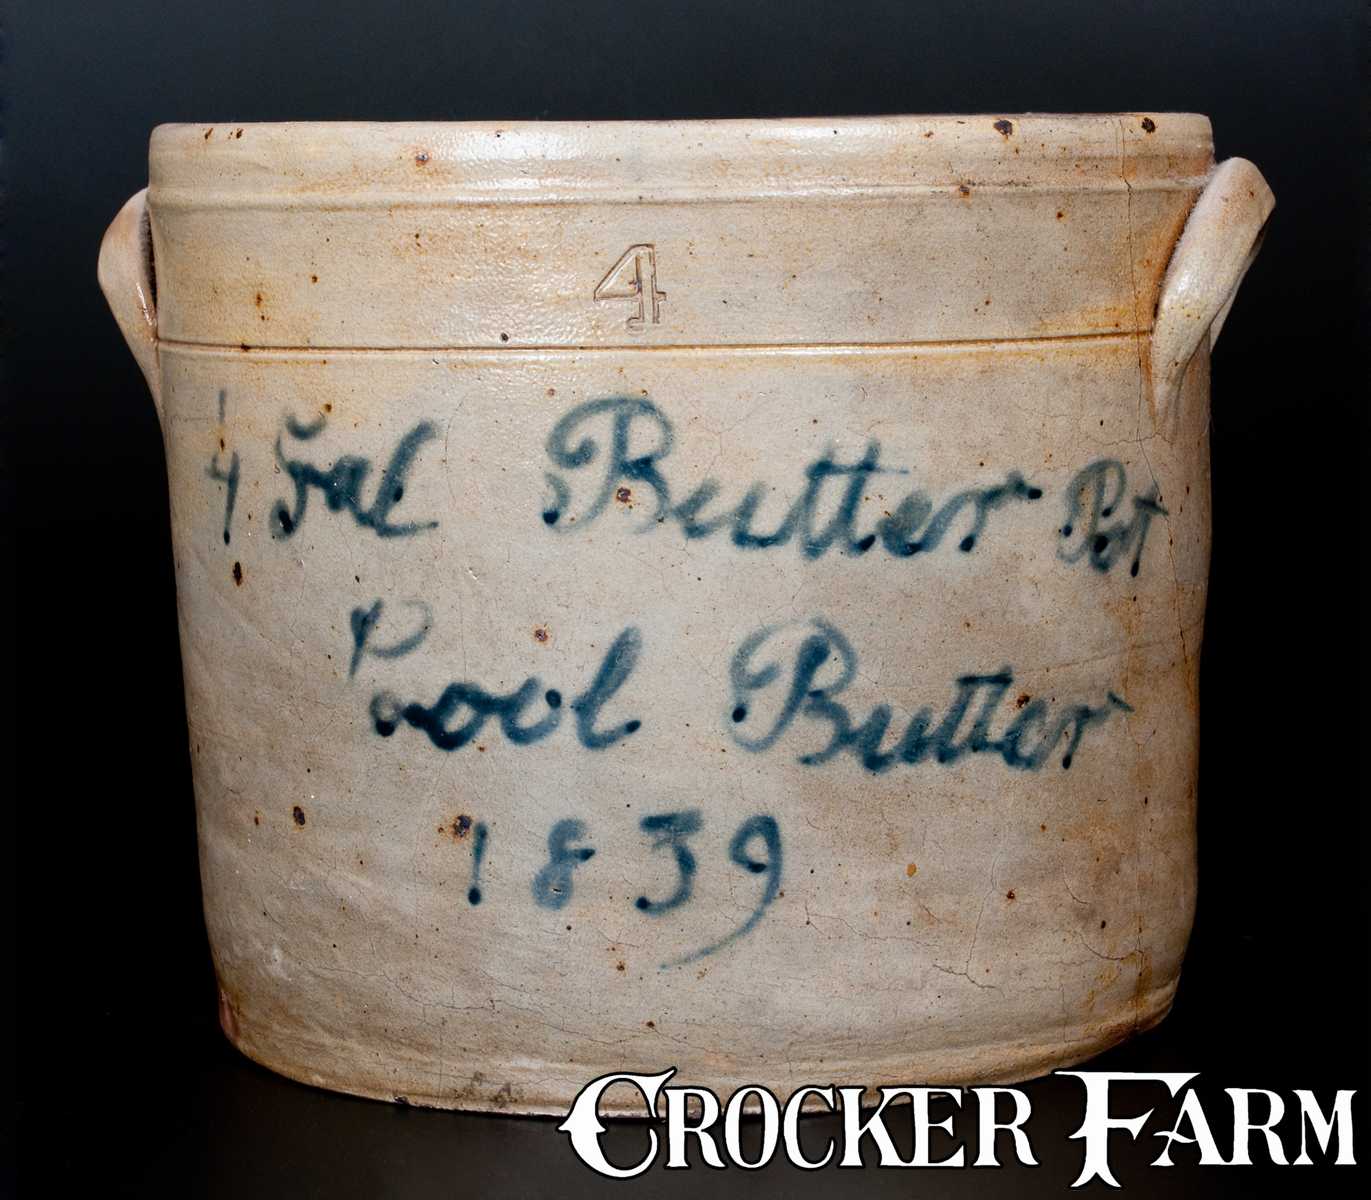 4
4 Gal Butter Pot
Cool Butter
1839
CROCKER FARM